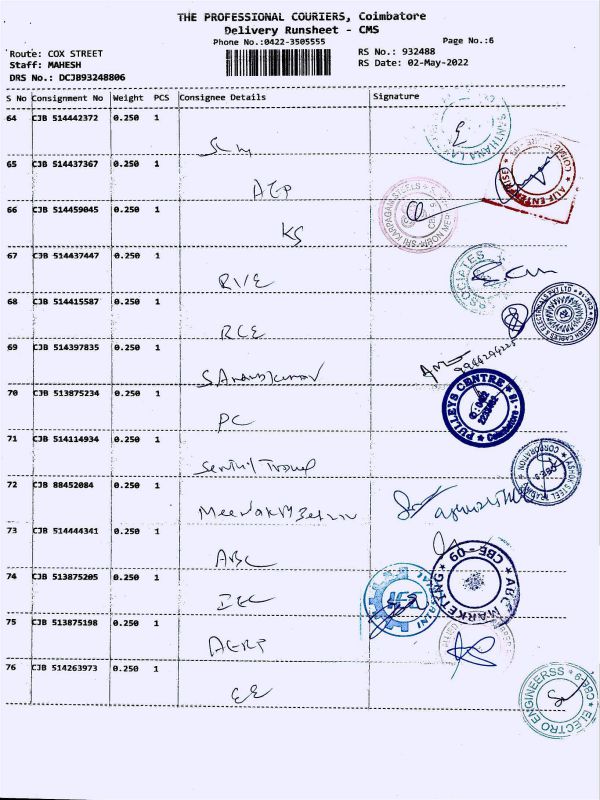 THE PROFESSIONAL COURIERS, Coimbatore
Delivery Runsheet - CMS
Phone No.:0422-3505555
Page No.:6
Route: COX STREET
RS No.: 932488
Staff: MAHESH
RS Date: 02-May-2022
DRS No.: DCJB93248806
S No Consignment No Weight PCS Consignee Details Signature
64 CJB 514442372 0.250 1
65 CJB 514437367 0.250 1
AEP
ALIF ENTERPRISE
66 CJB 514459045 0.250 1
KS
SRI KARPAGAM STEELS
67 CJB 514437447 0.250 1
RVE
68 CJB 514415587 0.250 1
RCE
69 CJB 514397835 0.250 1
70 CJB 513875234 0.250 1
PC
PULLEYS CENTRE
Coimbatore - 18
71 CJB 514114934 0.250 1
72 CJB 88452084 0.250 1
73 CJB 514444341 0.250 1
ABC
ABC MARKETING CBE - 09
74 CJB 513875205 0.250 1
IEC
75 CJB 513875198 0.250 1
76 CJB 514263973 0.250 1
EE
ELECTRO ENGINEERSS CBE-9